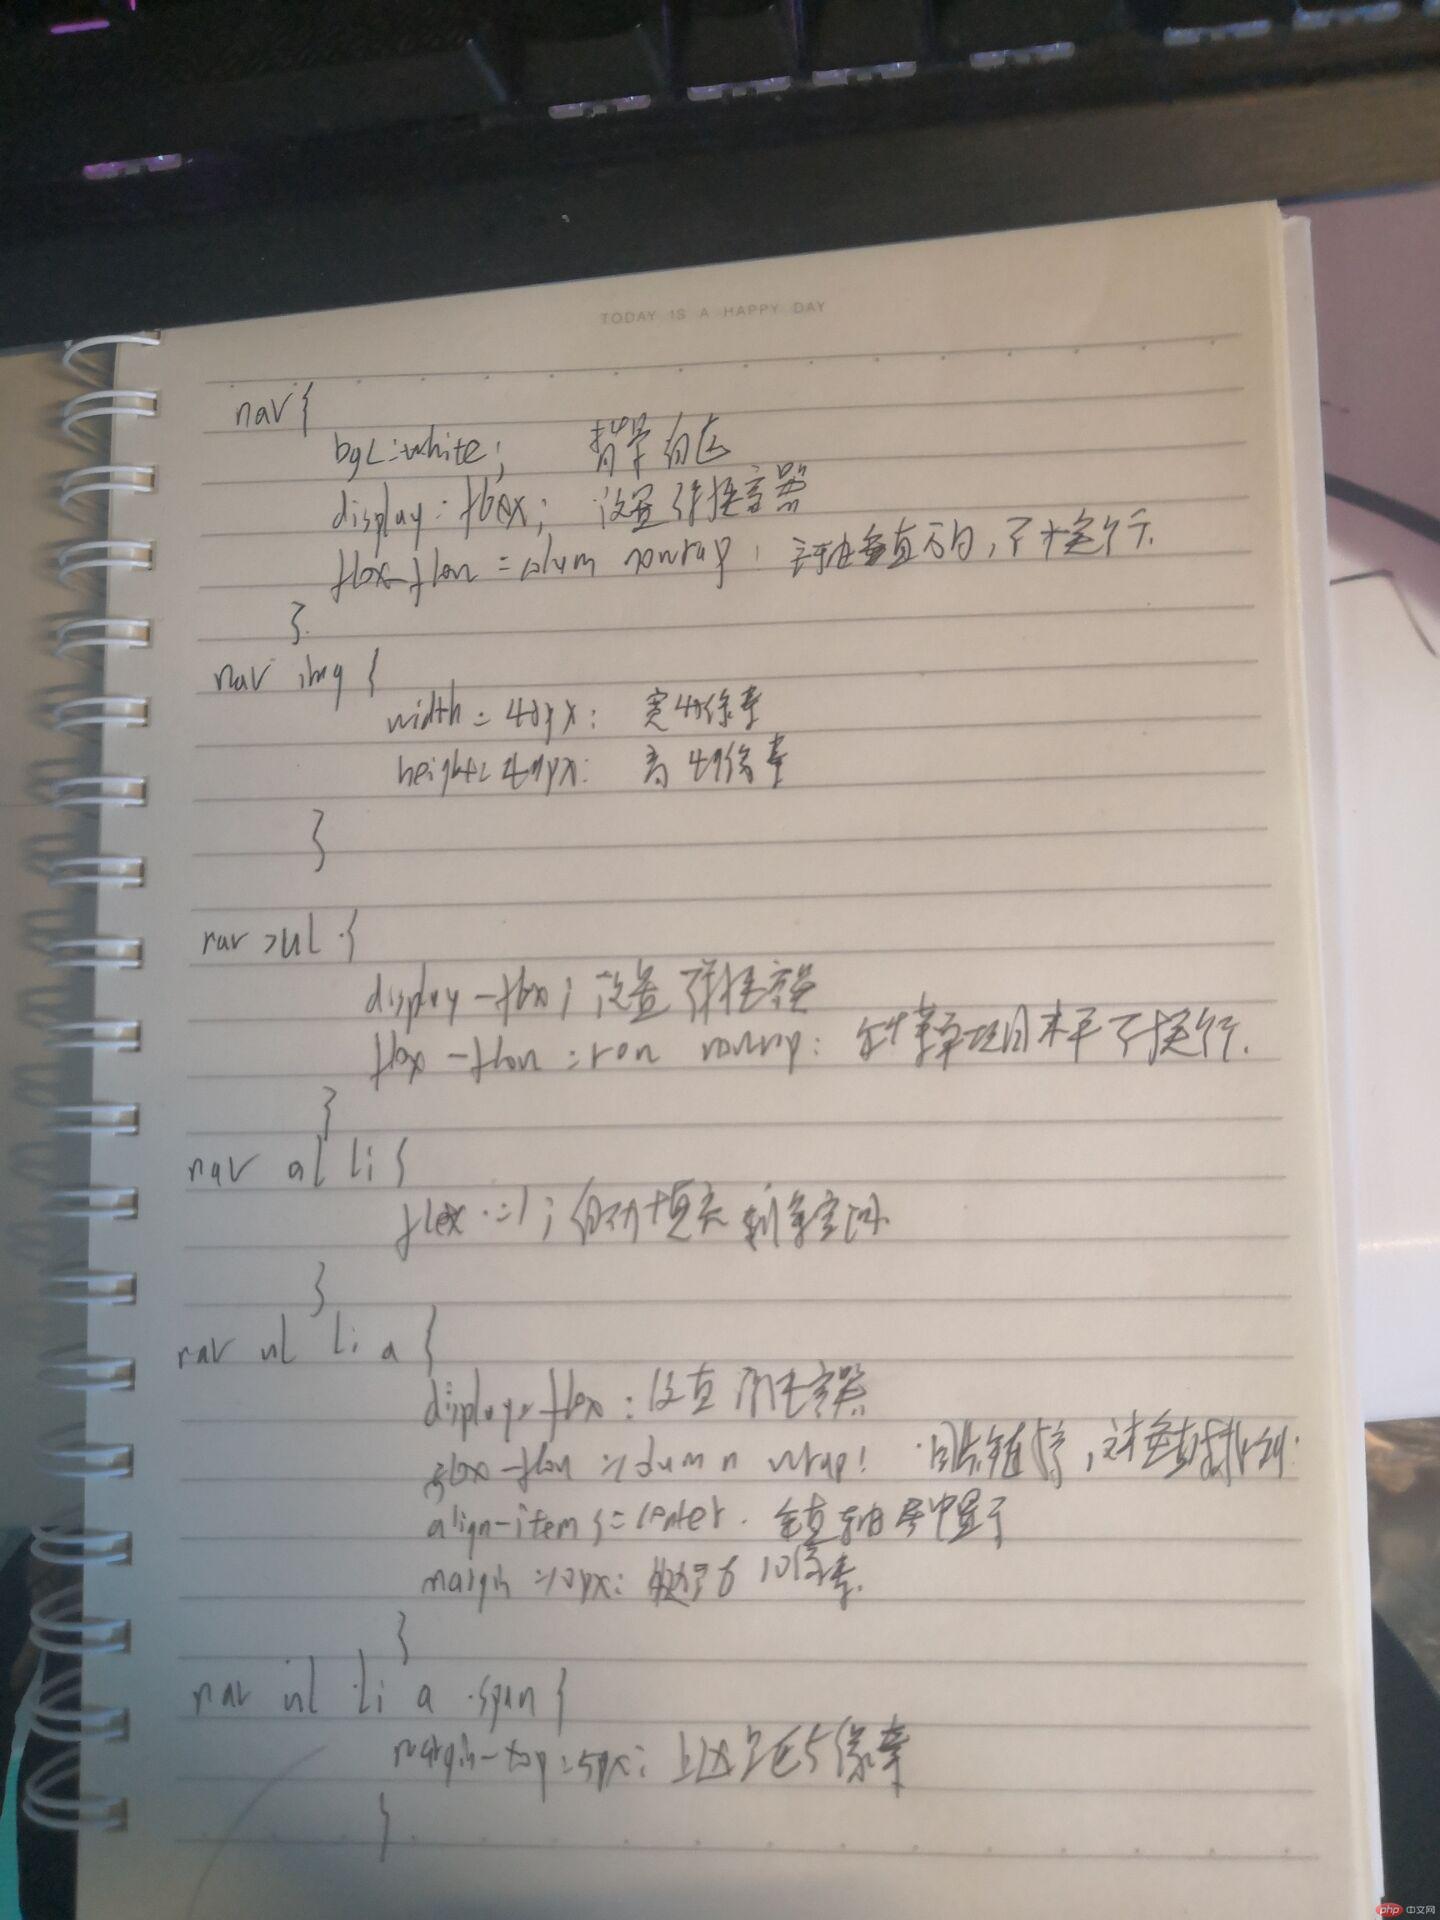 TODAY IS A HAPPY DAY
nav {
bgc:white; 背景白色
display:flex; 设置弹性容器
flex-flow = colum nowrap; 主轴垂直方向,不换行.
}
nav img {
width = 40px: 宽40像素
height: 40px: 高40像素
}
nav >ul {
display-flex; 设置弹性容器
flex-flow = row nowrap: 菜单项目水平不换行.
}
nav ul li {
flex := 1; 自动填充剩余空间
}
nav ul li a {
display: flex: 设置弹性容器
flex-flow = column wrap! 垂直排列
align-items = center. 垂直轴居中显示
margin =10px: 10像素.
}
nav ul li a span {
margin-top = 5px; 上边距5像素
}
php 中文网